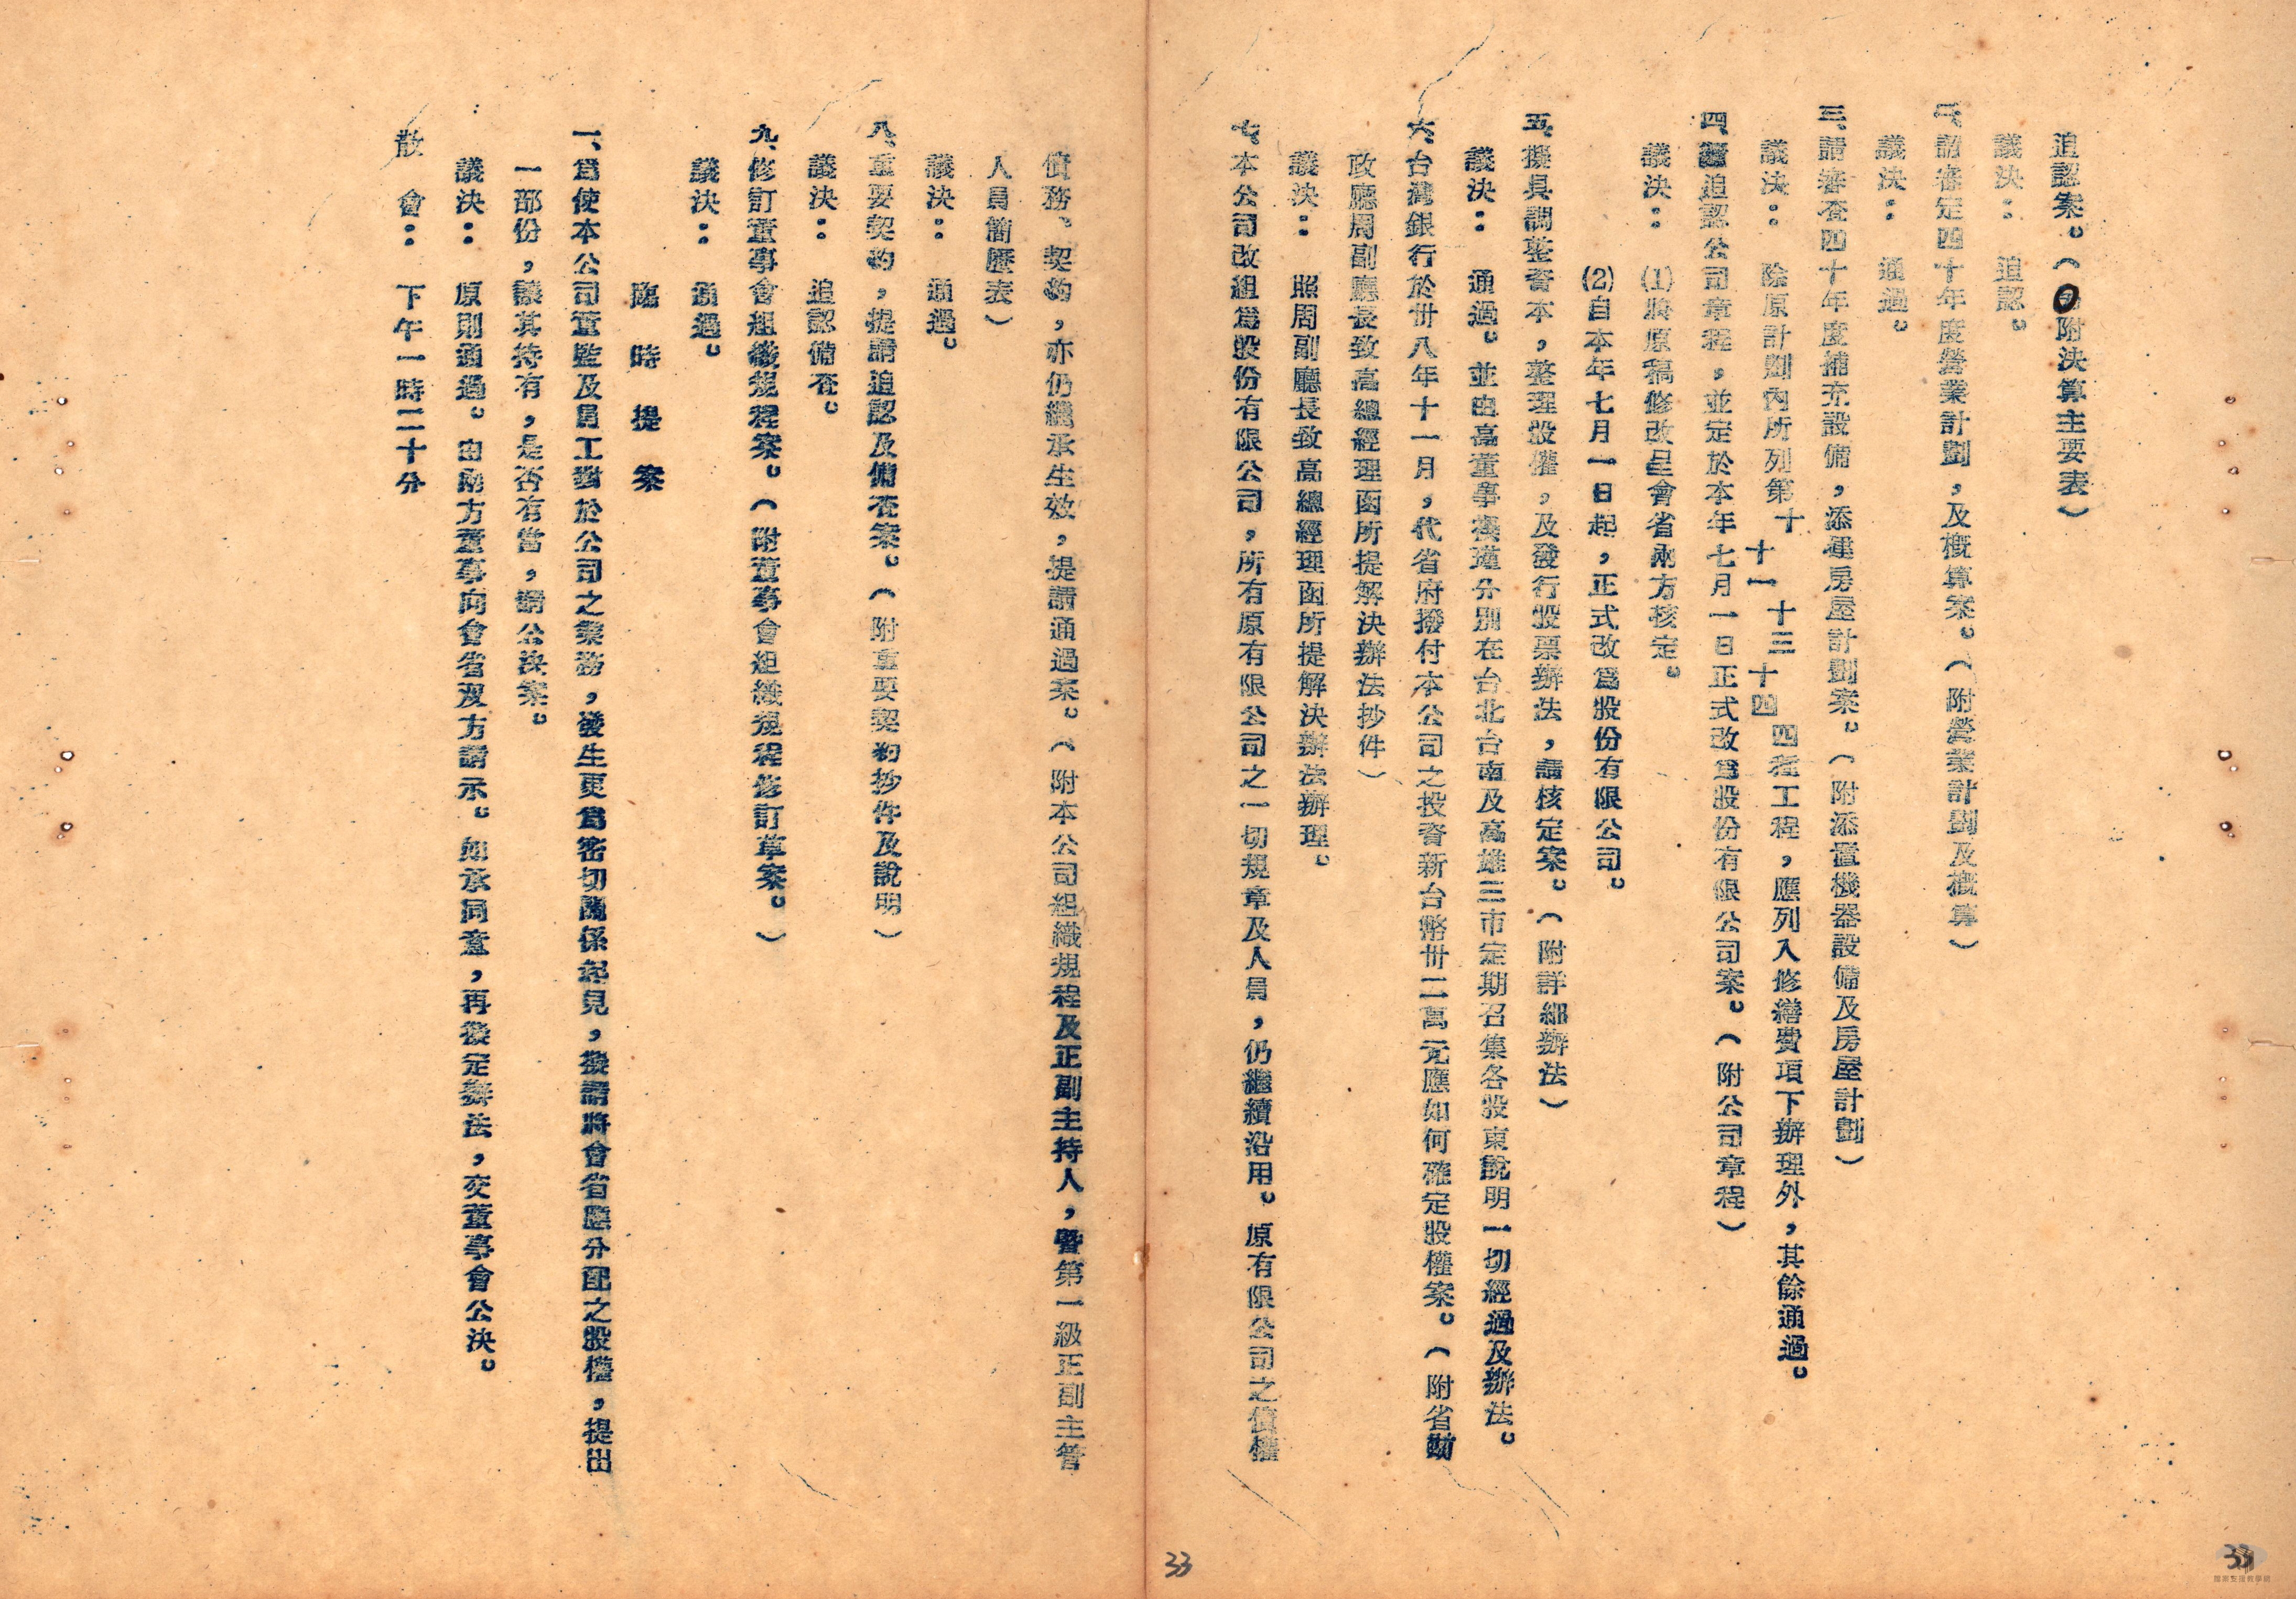 追認案。(附決算主要表)
議決:追認。
二、請審定四十年度營業計劃,及概算案。(附營業計劃及概算)
議決:通過。
三、請審查四十年度補充設備,添建房屋計劃案。(附添置機器設備及房屋計劃)
議決:除原計劃內所列第十 十一 十三 十四 四種工程,應列入修繕費項下辦理外,其餘通過。
四、請追認公司章程,並定於本年七月一日正式改為股份有限公司案。(附公司章程)
議決:(1)將原稿修改呈會省兩方核定。
(2)自本年七月一日起,正式改為股份有限公司。
五、擬具調整資本,整理股權,及發行股票辦法,請核定案。(附詳細辦法)
議決:通過。並由高董事 分別在台北台南及高雄三市定期召集各股東說明一切經過及辦法。
六、台灣銀行於卅八年十一月,代省府撥付本公司之投資新台幣卅二萬元應如何確定股權案。(附省財
政廳周副廳長致高總經理函所提解決辦法抄件)
議決:照周副廳長致高總經理函所提解決辦法辦理。
七、本公司改組為股份有限公司,所有原有限公司之一切規章及人員,仍繼續沿用。原有限公司之債權
債務、契約,亦仍繼承生效,提請通過案。(附本公司組織規程及正副主持人,暨第一級正副主管
人員簡歷表)
議決:通過。
八、重要契約,提請追認及備查案。(附重要契約抄件及說明)
議決:追認備查。
九、修訂董事會組織規程案。(附董事會組織規程修訂草案。)
議決:通過。
臨時提案
一、為使本公司董監及員工對於公司之業務,發生更為密切關係起見,擬請將會省應分配之股權,提出
一部份,讓其持有,是否有當,請公決案。
議決:原則通過。由兩方董事向會省雙方請示。如承同意,再擬定辦法,交董事會公決。
散會:下午一時二十分
33
33